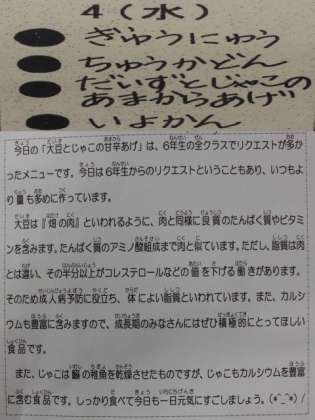 4(水)
ぎゅうにゅう
ちゅうかどん
だいずとじゃこの
あまからあげ
いよかん
今日の「大豆とじゃこの甘辛あげ」は、6年生の全クラスでリクエストが多か
ったメニューです。今日は6年生からのリクエストということもあり、いつも
より量も多めに作っています。
大豆は『畑の肉』といわれるように、肉と同様に良質のたんぱく質やビタミ
ンを含みます。たんぱく質のアミノ酸組成まで肉と似ています。ただし、脂質は肉
とは違い、その半分以上がコレステロールなどの値を下げる働きがあります。
そのため成人病予防に役立ち、体によい脂質といわれています。また、カルシ
ウムも豊富に含みますので、成長期のみなさんにはぜひ積極的にとってほしい
食品です。
また、じゃこは鰯の稚魚を乾燥させたものですが、じゃこもカルシウムを豊富
に含む食品です。しっかり食べて今日も一日元気にすごしましょう。(*^_^*)/